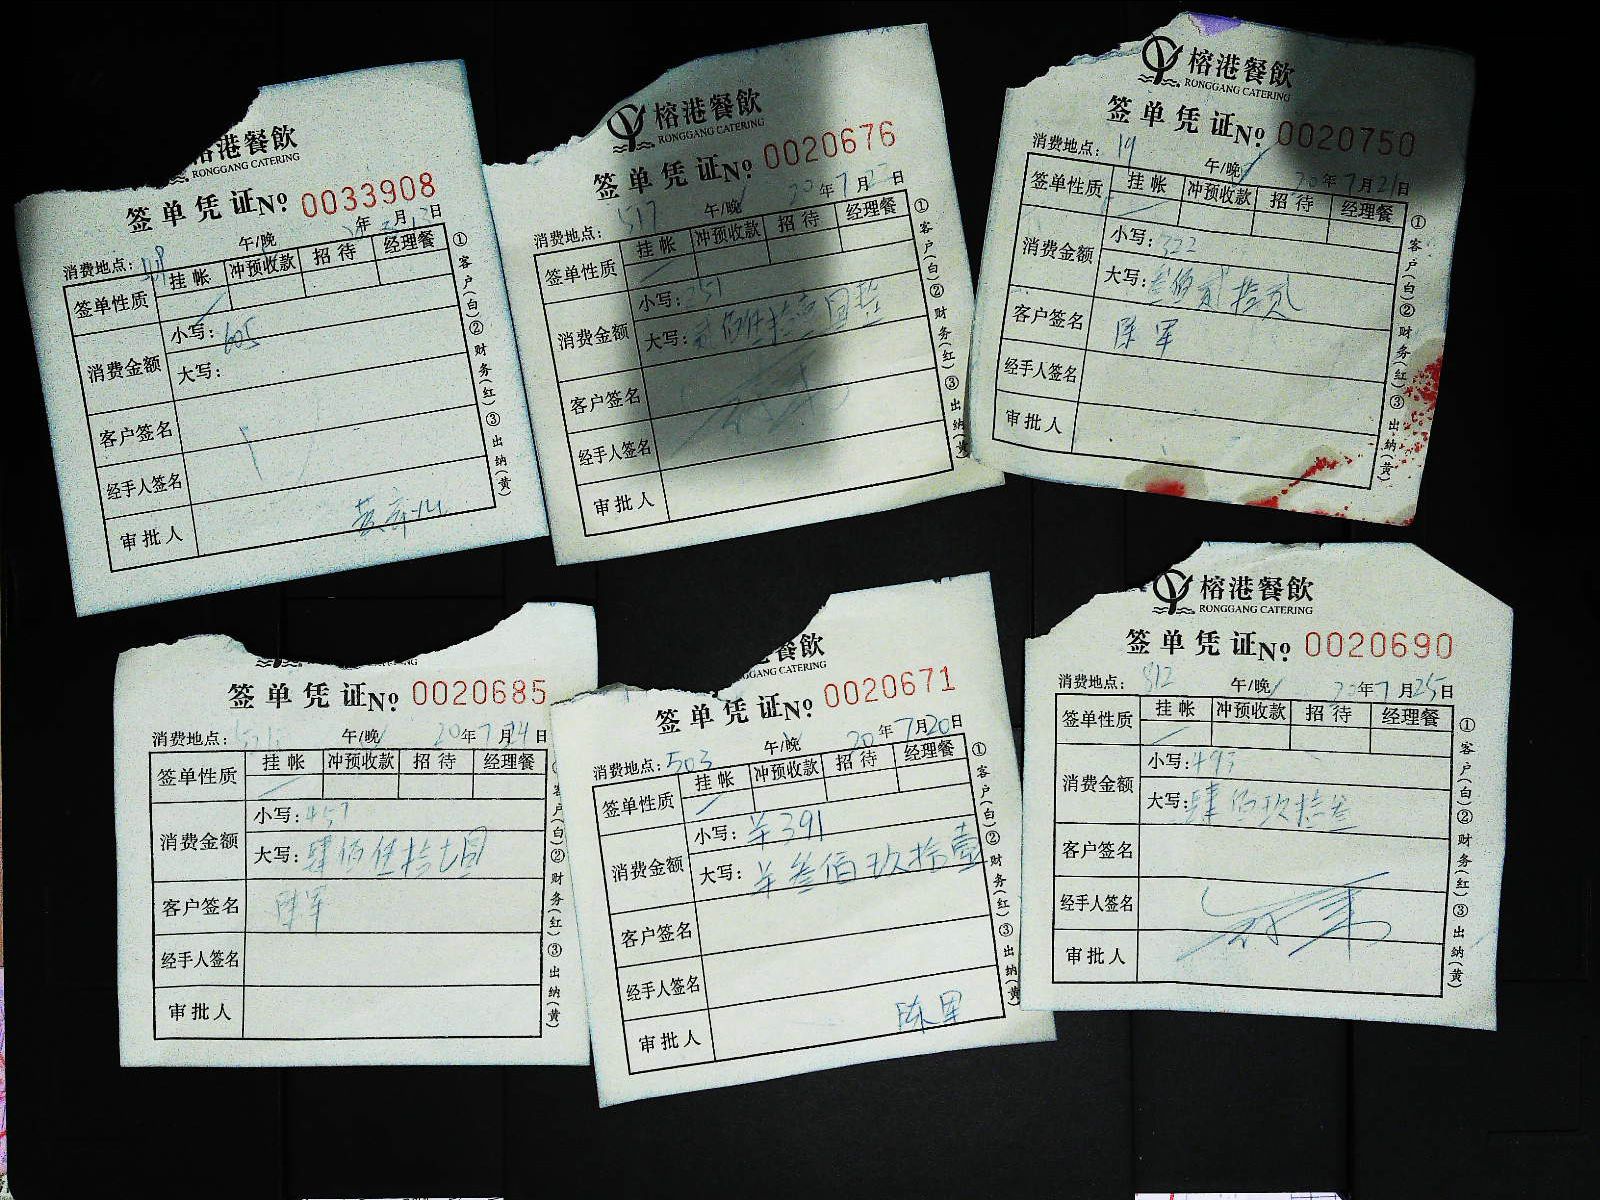 港餐飲
RONGGANG CATERING
签单凭证No. 0033908
年 月 日
消费地点: 午/晚
签单性质 挂帐 冲预收款 招待 经理餐
消费金额 小写: 605
大写:
客户签名
经手人签名
审批人
①客户(白)②财务(红)③出纳(黄)
榕港餐飲
RONGGANG CATERING
签单凭证No. 0020676
消费地点: 517 午/晚 20年7月 日
签单性质 挂帐 冲预收款 招待 经理餐
消费金额 小写: 251
大写: 贰佰伍拾壹圆整
客户签名
经手人签名
审批人
①客户(白)②财务(红)③出纳(黄)
榕港餐飲
RONGGANG CATERING
签单凭证No. 0020750
消费地点: 19 午/晚 20年7月21日
签单性质 挂帐 冲预收款 招待 经理餐
消费金额 小写: 322
大写: 叁佰贰拾贰
客户签名 陈军
经手人签名
审批人
①客户(白)②财务(红)③出纳(黄)
签单凭证No. 0020685
消费地点: 午/晚 20年7月24日
签单性质 挂帐 冲预收款 招待 经理餐
消费金额 小写: 457
大写: 肆佰伍拾七圆
客户签名 陈军
经手人签名
审批人
客户(白)②财务(红)③出纳(黄)
餐飲
GANG CATERING
签单凭证No. 0020671
消费地点: 503 午/晚 20年7月20日
签单性质 挂帐 冲预收款 招待 经理餐
消费金额 小写: 羊391
大写: 羊叁佰玖拾壹
客户签名
经手人签名
审批人 陈军
①客户(白)②财务(红)③出纳(黄)
榕港餐飲
RONGGANG CATERING
签单凭证No. 0020690
消费地点: 812 午/晚 20年7月25日
签单性质 挂帐 冲预收款 招待 经理餐
消费金额 小写: 493
大写: 肆佰玖拾叁
客户签名
经手人签名
审批人
①客户(白)②财务(红)③出纳(黄)